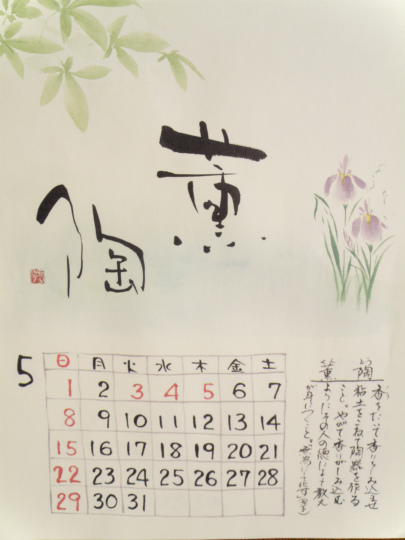 薫
陶
5
日 月 火 水 木 金 土
1 2 3 4 5 6 7
8 9 10 11 12 13 14
15 16 17 18 19 20 21
22 23 24 25 26 27 28
29 30 31
陶 粘土をこねて陶器を作る
こと。やがて香りがしみ込む
ようにその人の徳によって教え
が身につくこと。